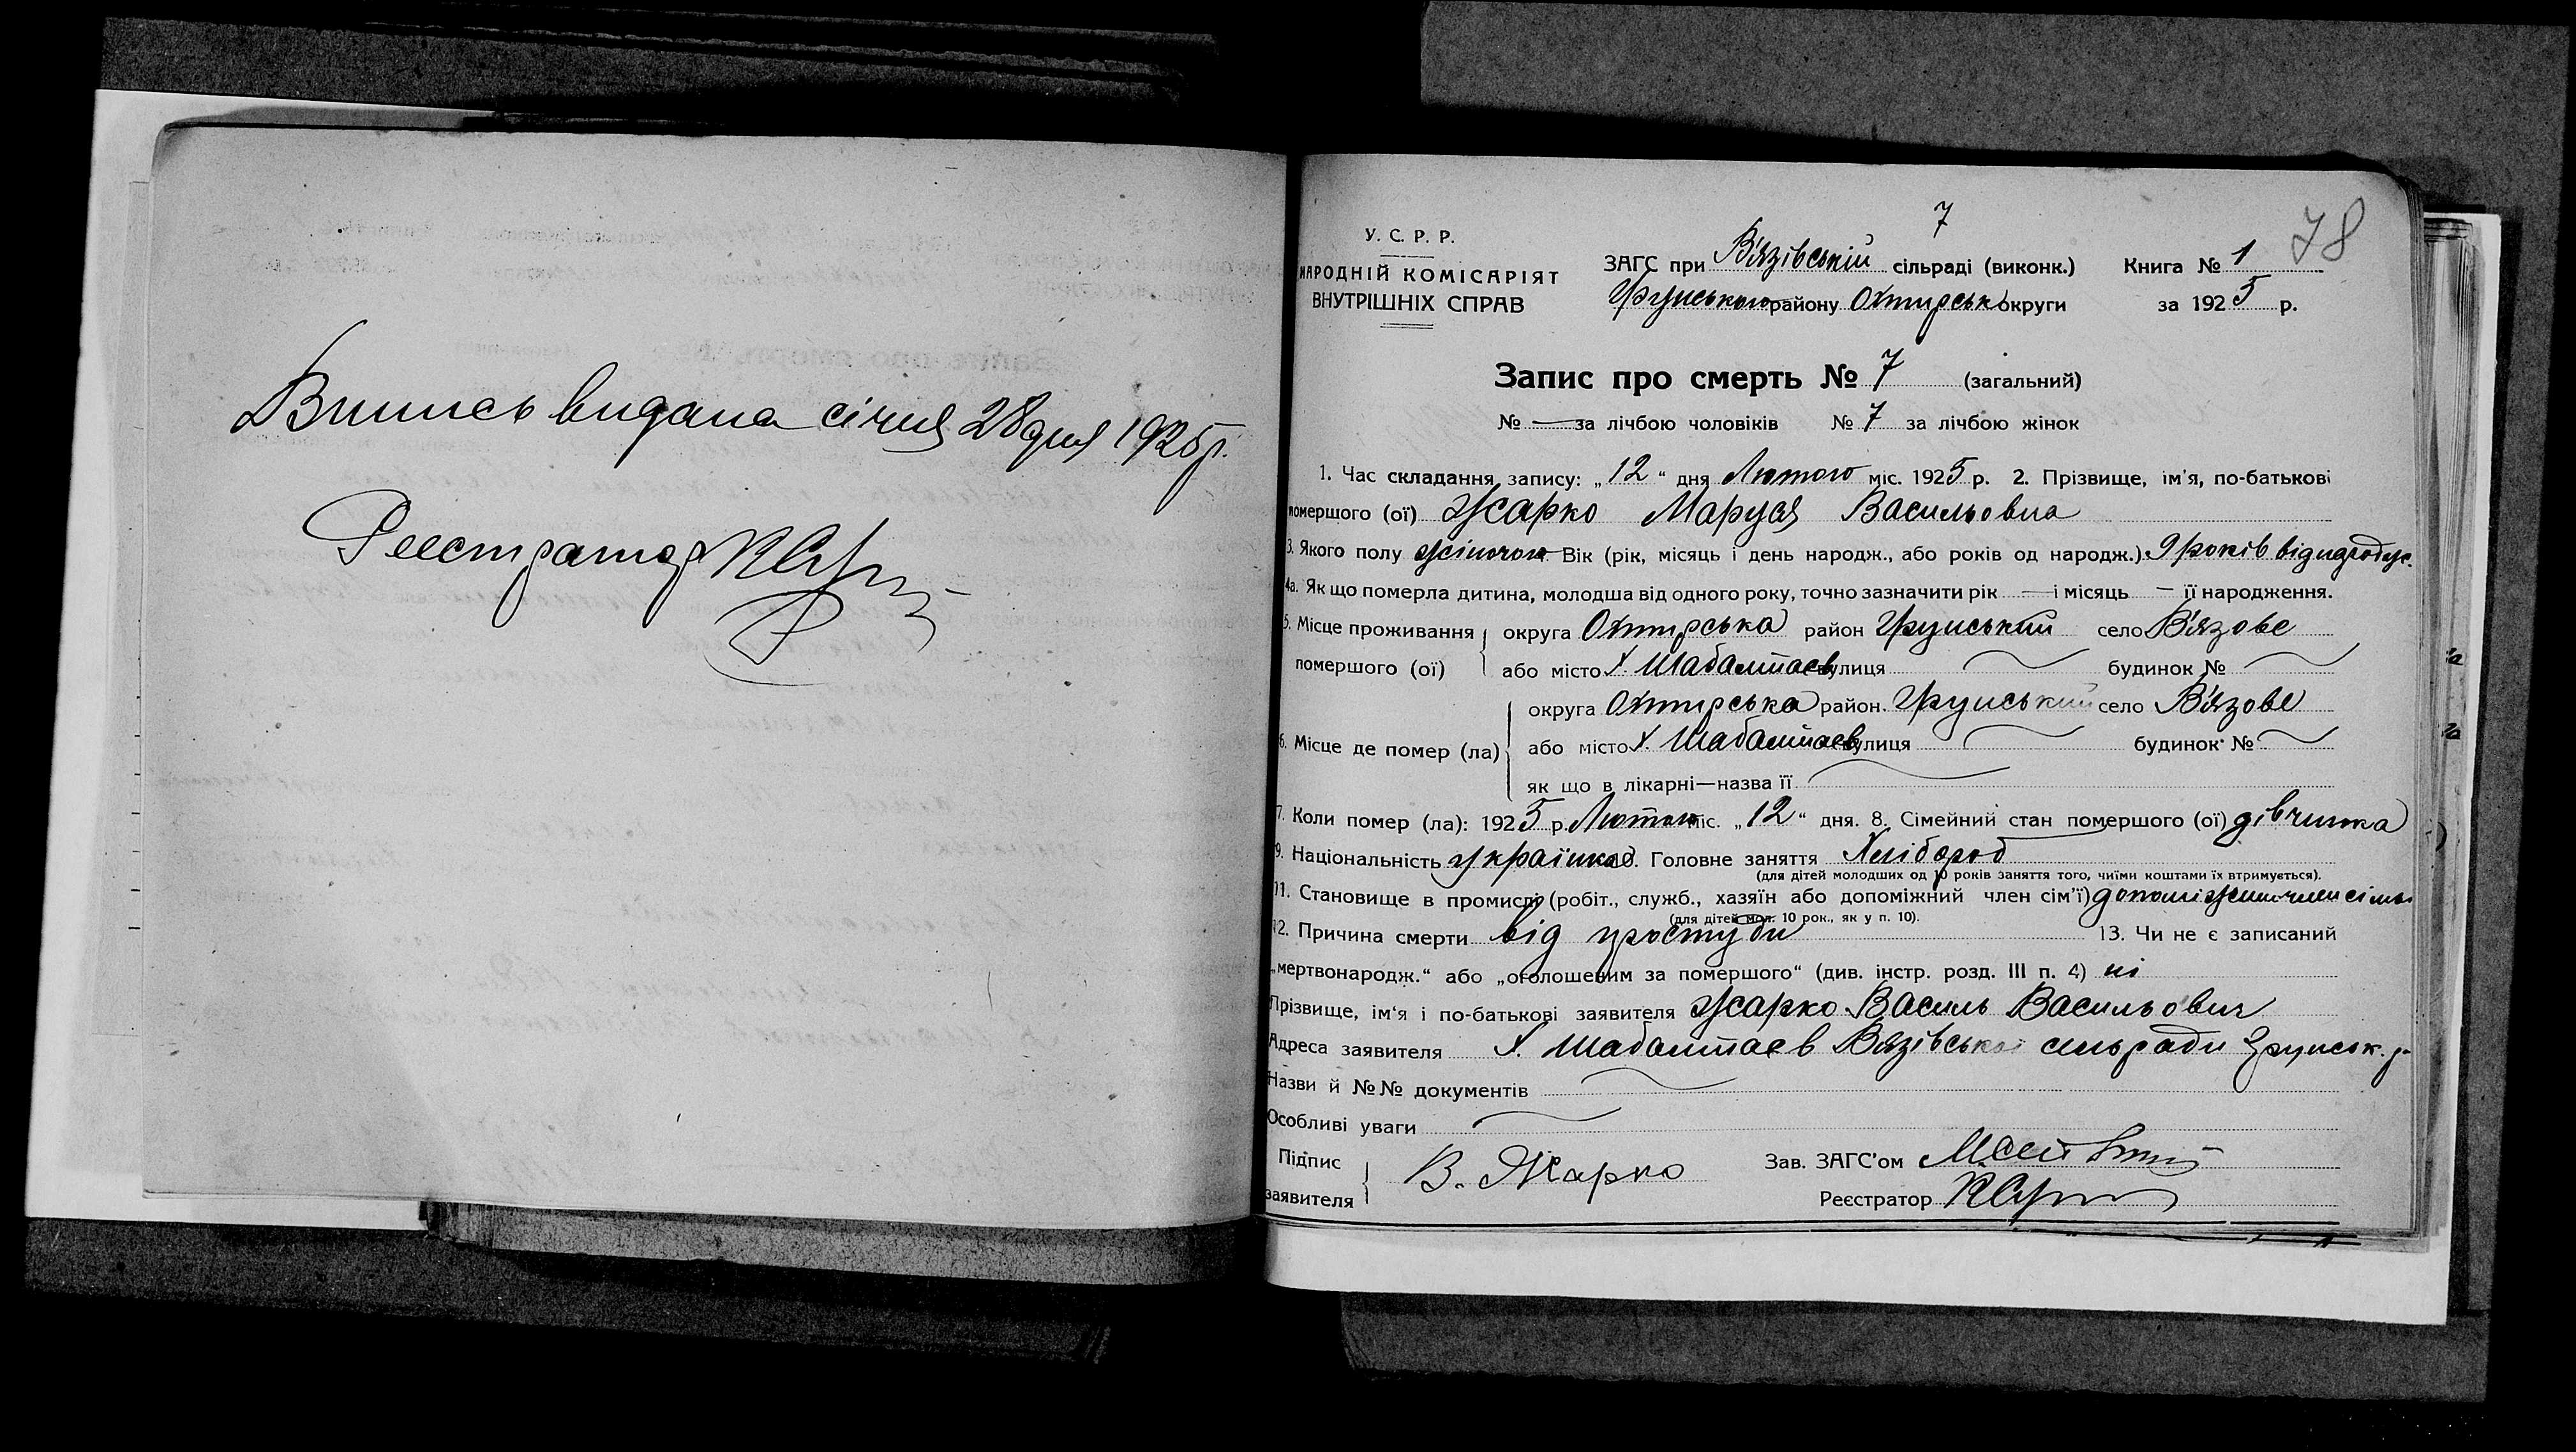 Випись видана січня 28 дня 1925 р.
Реєстратор
7
78
У. С. Р. Р.
НАРОДНІЙ КОМІСАРІЯТ
ВНУТРІШНІХ СПРАВ
ЗАГС при В'язівській сільраді (виконк.) Книга № 1
Грунського району Охтирськ округи за 1925 р.
Запис про смерть № 7 (загальний)
№ — за лічбою чоловіків № 7 за лічбою жінок
1. Час складання запису: „12“ дня Лютого міс. 1925 р. 2. Прізвище, ім'я, по-батькові
помершого (ої) Жарко Маруся Васильовна
3. Якого полу жіночого Вік (рік, місяць і день народж., або років од народж.) 9 років від
4а. Як що померла дитина, молодша від одного року, точно зазначити рік — і місяць — її народження.
5. Місце проживання округа Охтирська район Грунський село В'язове
помершого (ої) або місто х. Шабалтаєв вулиця будинок №
округа Охтирська район. Грунський село В'язове
6. Місце де помер (ла) або місто х. Шабалтаєв вулиця будинок №
як що в лікарні—назва її
7. Коли помер (ла): 1925 р. Лютого міс. „12“ дня. 8. Сімейний стан помершого (ої) дівчинка
9. Національність українка 10. Головне заняття Хлібороб
(для дітей молодших од 10 років заняття того, чиїми коштами їх втримується).
11. Становище в промислі (робіт., служб., хазяїн або допоміжний член сім'ї) допоміжний член сімьи
(для дітей мол. 10 рок., як у п. 10).
12. Причина смерти від простуди 13. Чи не є записаний
„мертвонародж.“ або „оголошеним за помершого“ (див. інстр. розд. III п. 4) ні
Прізвище, ім'я і по-батькові заявителя Жарко Василь Васильович
Адреса заявителя х. Шабалтаєв Вязівської сельради Грунськ. р-
Назви й №№ документів
Особливі уваги
Підпис
заявителя В. Жарко
Зав. ЗАГС'ом
Реєстратор